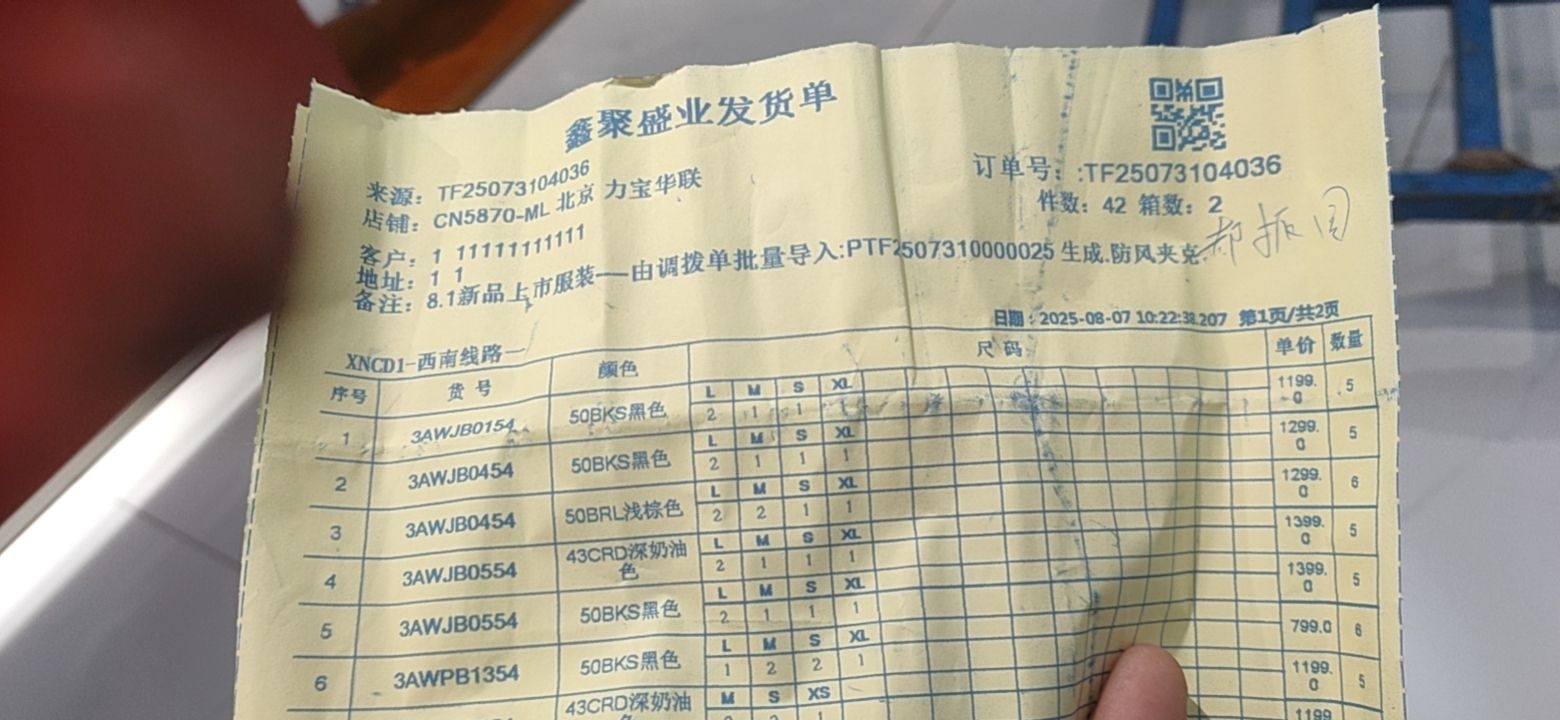 鑫聚盛业发货单
来源：TF25073104036
订单号：:TF25073104036
店铺：CN5870-ML 北京 力宝华联
件数：42 箱数：2
客户：1 11111111111
地址：1 1
备注：8.1新品上市服装——由调拨单批量导入:PTF2507310000025 生成.防风夹克
日期：2025-08-07 10:22:38.207 第1页/共2页
XNCD1-西南线路一
序号 货号 颜色 尺码 单价 数量
L M S XL
1 3AWJB0154 50BKS黑色 2 1 1 1 1199.0 5
L M S XL
2 3AWJB0454 50BKS黑色 2 1 1 1 1299.0 5
L M S XL
3 3AWJB0454 50BRL浅棕色 2 2 1 1 1299.0 6
L M S XL
4 3AWJB0554 43CRD深奶油色 2 1 1 1 1399.0 5
L M S XL
5 3AWJB0554 50BKS黑色 2 1 1 1 1399.0 5
L M S XL
6 3AWPB1354 50BKS黑色 1 2 2 1 799.0 6
M S XS
43CRD深奶油 1199.0 5
1199